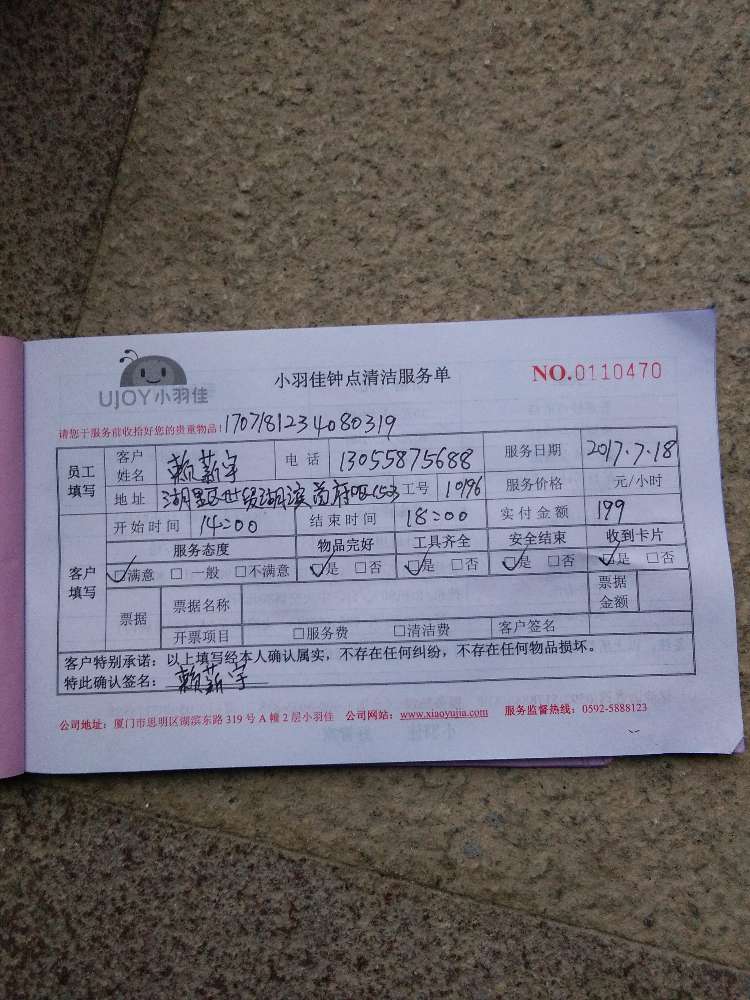 UJOY小羽佳
小羽佳钟点清洁服务单
NO.0110470
请您于服务前收拾好您的贵重物品! 1707181234080319
员工填写 客户姓名 赖薪宇 电话 13055875688 服务日期 2017.7.18
地址 湖里区世贸湖滨首府 工号 10196 服务价格 元/小时
开始时间 14:00 结束时间 18:00 实付金额 199
客户填写 服务态度 物品完好 工具齐全 安全结束 收到卡片
☑满意 □一般 □不满意 ☑是 □否 ☑是 □否 ☑是 □否 ☑是 □否
票据 票据名称 票据金额
开票项目 □服务费 □清洁费 客户签名
客户特别承诺：以上填写经本人确认属实，不存在任何纠纷，不存在任何物品损坏。
特此确认签名：赖薪宇
公司地址：厦门市思明区湖滨东路 319 号 A 幢 2 层小羽佳 公司网站：www.xiaoyujia.com 服务监督热线：0592-5888123